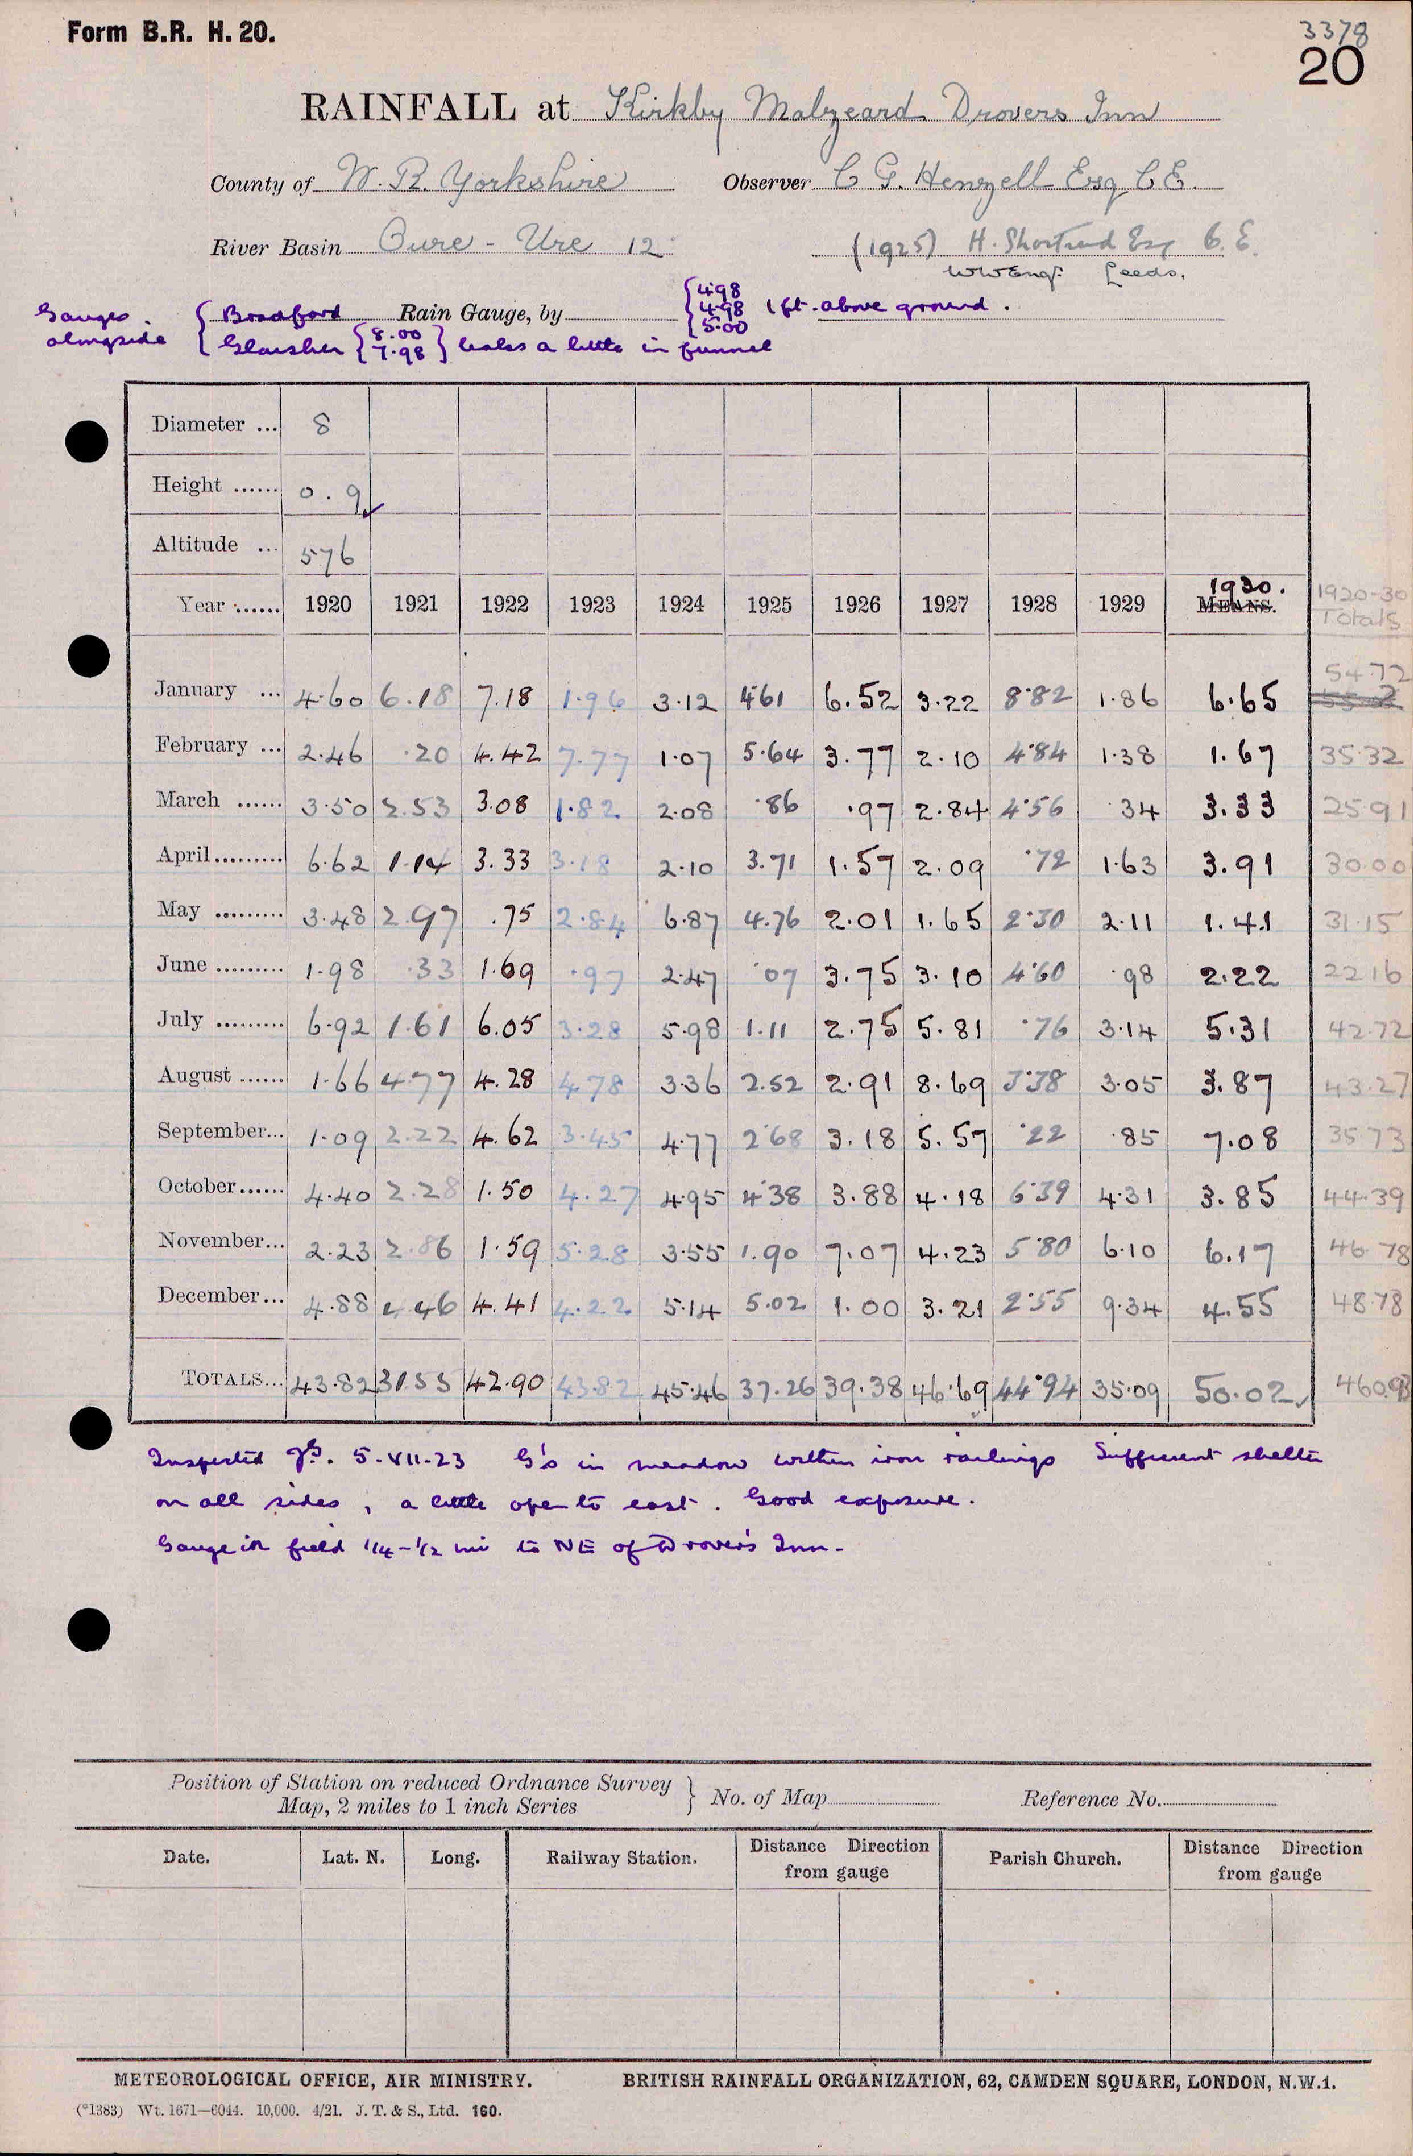 Form B.R. H. 20.
3378
20
RAINFALL at Kirkby Malzeard Drovers Inn
County of W. R. Yorkshire Observer C G. Henzell Esq C.E.
River Basin Oure - Ure 12 (1925) H. Shortreed Esq C.E.
W W Engr. Leeds.
Gauges alongside { Bradford Rain Gauge, by { 4.98 4.98 5.00 1 ft. above ground.
Glaisher { 8.00 7.98 } leaks a little in funnel
Diameter ... 8
Height ...... 0.9
Altitude ... 576
Year ...... 1920 1921 1922 1923 1924 1925 1926 1927 1928 1929 MEANS. 1930. 1920-30 Totals
January ... 4.60 6.18 7.18 1.96 3.12 4.61 6.52 3.22 8.82 1.86 6.65 54.72
February ... 2.46 .20 4.42 7.77 1.07 5.64 3.77 2.10 4.84 1.38 1.67 35.32
March ...... 3.50 2.53 3.08 1.82 2.08 .86 .97 2.84 4.56 .34 3.33 25.91
April......... 6.62 1.14 3.33 3.18 2.10 3.71 1.57 2.09 .72 1.63 3.91 30.00
May ......... 3.48 2.97 .75 2.84 6.87 4.76 2.01 1.65 2.30 2.11 1.41 31.15
June ......... 1.98 .33 1.69 .97 2.47 .07 3.75 3.10 4.60 .98 2.22 22.16
July ......... 6.92 1.61 6.05 3.28 5.98 1.11 2.75 5.81 .76 3.14 5.31 42.72
August ...... 1.66 4.77 4.28 4.78 3.36 2.52 2.91 8.69 3.38 3.05 3.87 43.27
September... 1.09 2.22 4.62 3.45 4.77 2.68 3.18 5.57 .22 .85 7.08 35.73
October...... 4.40 2.28 1.50 4.27 4.95 4.38 3.88 4.18 6.39 4.31 3.85 44.39
November... 2.23 2.86 1.59 5.28 3.55 1.90 7.07 4.23 5.80 6.10 6.17 46.78
December... 4.88 4.46 4.41 4.22 5.14 5.02 1.00 3.21 2.55 9.34 4.55 48.78
TOTALS... 43.82 31.55 42.90 43.82 45.46 37.26 39.38 46.69 44.94 35.09 50.02 460.93
Inspected 5-VII-23 G's in meadow within iron railings Sufficient shelter
on all sides, a little open to east. Good exposure.
Gauge in field 1/4-1/2 mi to NE of Drover's Inn.
Position of Station on reduced Ordnance Survey
Map, 2 miles to 1 inch Series } No. of Map Reference No.
Date. Lat. N. Long. Railway Station. Distance Direction from gauge Parish Church. Distance Direction from gauge
METEOROLOGICAL OFFICE, AIR MINISTRY. BRITISH RAINFALL ORGANIZATION, 62, CAMDEN SQUARE, LONDON, N.W.1.
(*1383) Wt. 1671—6044. 10,000. 4/21. J. T. & S., Ltd. 160.